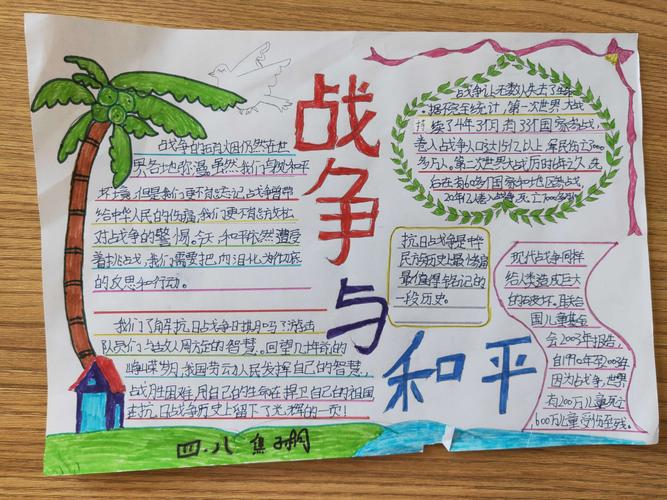 战争与和平
战争的硝烟仍然在世
界各地弥漫,虽然我们身处和平
环境,但是我们更不能忘记,战争曾带
给中华人民的伤痛,我们更不能放松
对战争的警惕。今天,和平依然遭受
着挑战,我们需要把,内泪化为彻底
的反思和行动。
我们了解抗日战争日期吗?游击
队员们与敌人周旋的智慧。回望几十年前的
峥嵘岁月,我国劳动人民发挥自己的智慧,
战胜困难,用自己的生命在捍卫自己的祖国
在抗日战争历史上留下了光辉的一页!
战争让无数人失去了生命
据不完全统计,第一次世界大战
持续了4年3个月,有33个国家参战,
卷入战争人口达15亿以上,军民伤亡3000
多万人。第二次世界大战历时
后在有60多个国家和地区参战,
20多亿人卷入战争
抗日战争是中华
民族历史上最悲痛
最值得铭记的
一段历史。
现代战争同样
给人类造成巨大
的破坏。联合
国儿童基金
会2003年报告,
自1990年至2003年
因为战争,世界
有200万儿童死亡
600万儿童受伤至残。
四.八 焦